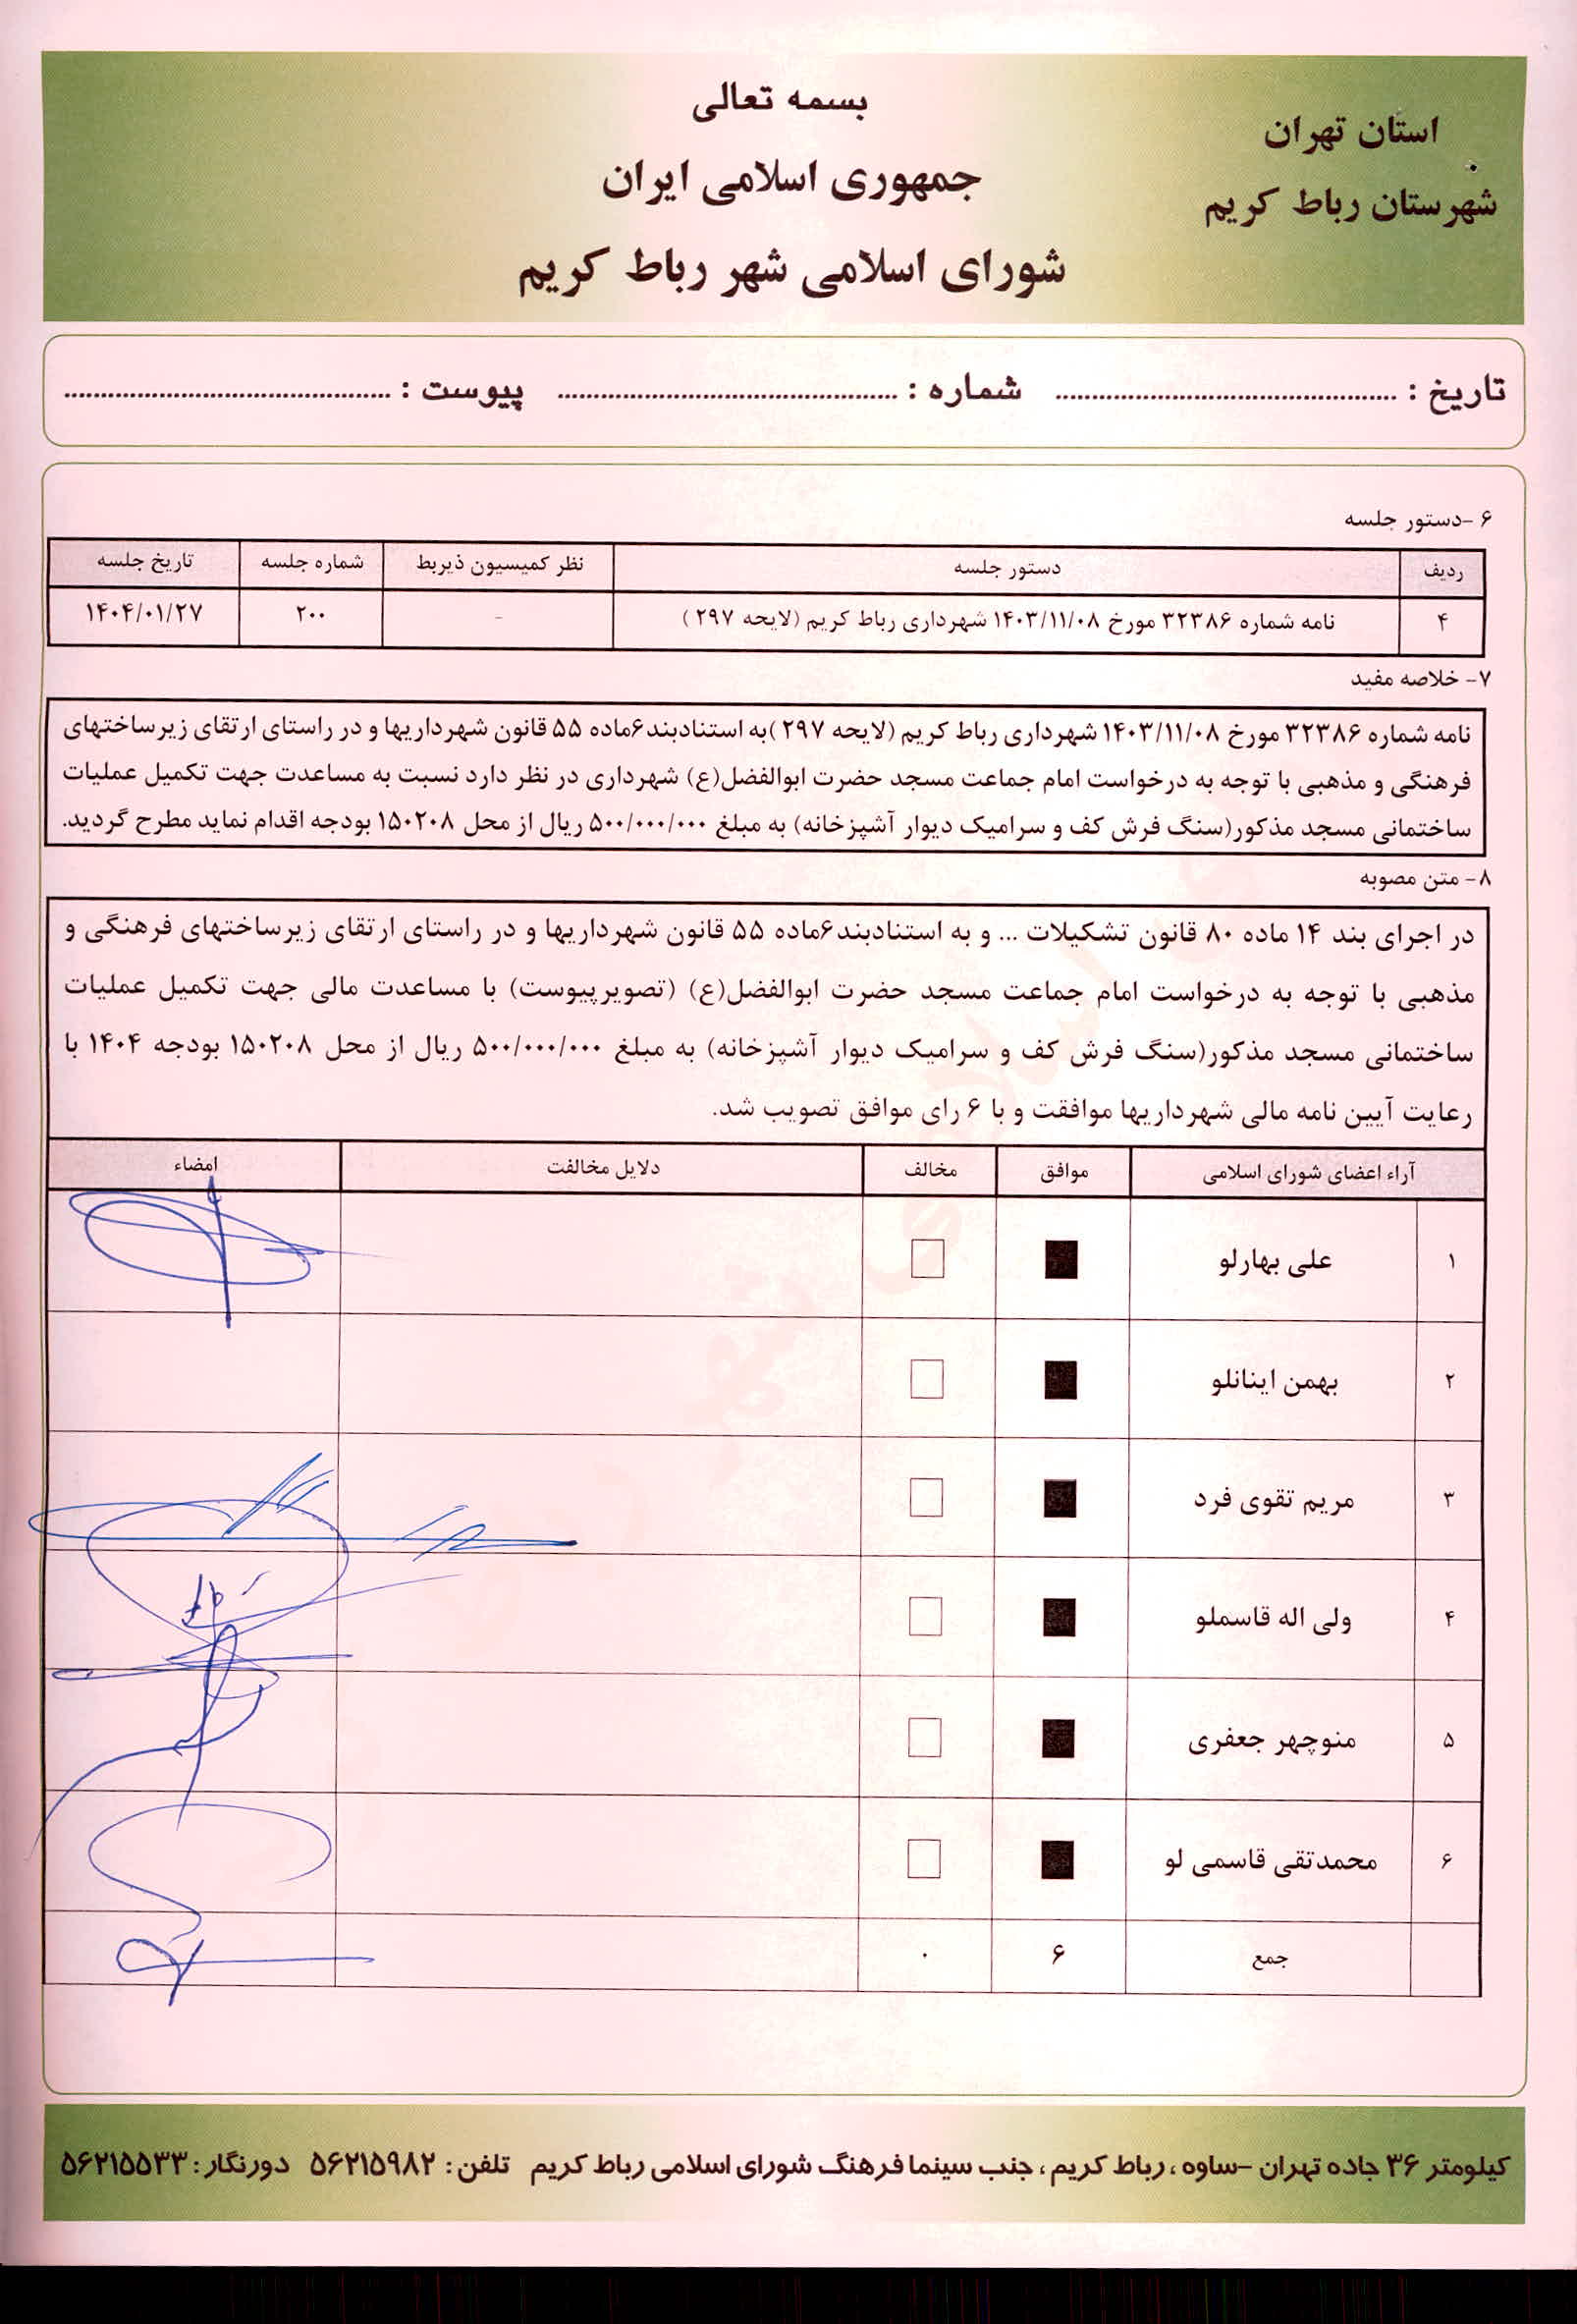 بسمه تعالی
استان تهران
جمهوری اسلامی ایران
شهرستان رباط کریم
شورای اسلامی شهر رباط کریم
تاریخ : ........................ شماره : ........................ پیوست : ........................
۶ -دستور جلسه
ردیف دستور جلسه نظر کمیسیون ذیربط شماره جلسه تاریخ جلسه
۴ نامه شماره ۳۲۳۸۶ مورخ ۱۴۰۳/۱۱/۰۸ شهرداری رباط کریم (لایحه ۲۹۷ ) - ۲۰۰ ۱۴۰۴/۰۱/۲۷
۷- خلاصه مفید
نامه شماره ۳۲۳۸۶ مورخ ۱۴۰۳/۱۱/۰۸ شهرداری رباط کریم (لایحه ۲۹۷ )به استنادبند۶ماده ۵۵ قانون شهرداریها و در راستای ارتقای زیرساختهای
فرهنگی و مذهبی با توجه به درخواست امام جماعت مسجد حضرت ابوالفضل(ع) شهرداری در نظر دارد نسبت به مساعدت جهت تکمیل عملیات
ساختمانی مسجد مذکور(سنگ فرش کف و سرامیک دیوار آشپزخانه) به مبلغ ۵۰۰/۰۰۰/۰۰۰ ریال از محل ۱۵۰۲۰۸ بودجه اقدام نماید مطرح گردید.
۸- متن مصوبه
در اجرای بند ۱۴ ماده ۸۰ قانون تشکیلات ... و به استنادبند۶ماده ۵۵ قانون شهرداریها و در راستای ارتقای زیرساختهای فرهنگی و
مذهبی با توجه به درخواست امام جماعت مسجد حضرت ابوالفضل(ع) (تصویرپیوست) با مساعدت مالی جهت تکمیل عملیات
ساختمانی مسجد مذکور(سنگ فرش کف و سرامیک دیوار آشپزخانه) به مبلغ ۵۰۰/۰۰۰/۰۰۰ ریال از محل ۱۵۰۲۰۸ بودجه ۱۴۰۴ با
رعایت آیین نامه مالی شهرداریها موافقت و با ۶ رای موافق تصویب شد.
آراء اعضای شورای اسلامی موافق مخالف دلایل مخالفت امضاء
۱ علی بهارلو ■ □
۲ بهمن اینانلو ■ □
۳ مریم تقوی فرد ■ □
۴ ولی اله قاسملو ■ □
۵ منوچهر جعفری ■ □
۶ محمدتقی قاسمی لو ■ □
جمع ۶ ۰
کیلومتر ۳۶ جاده تهران -ساوه ، رباط کریم ، جنب سینما فرهنگ شورای اسلامی رباط کریم تلفن : ۵۶۲۱۵۹۸۲ دورنگار : ۵۶۲۱۵۵۳۳